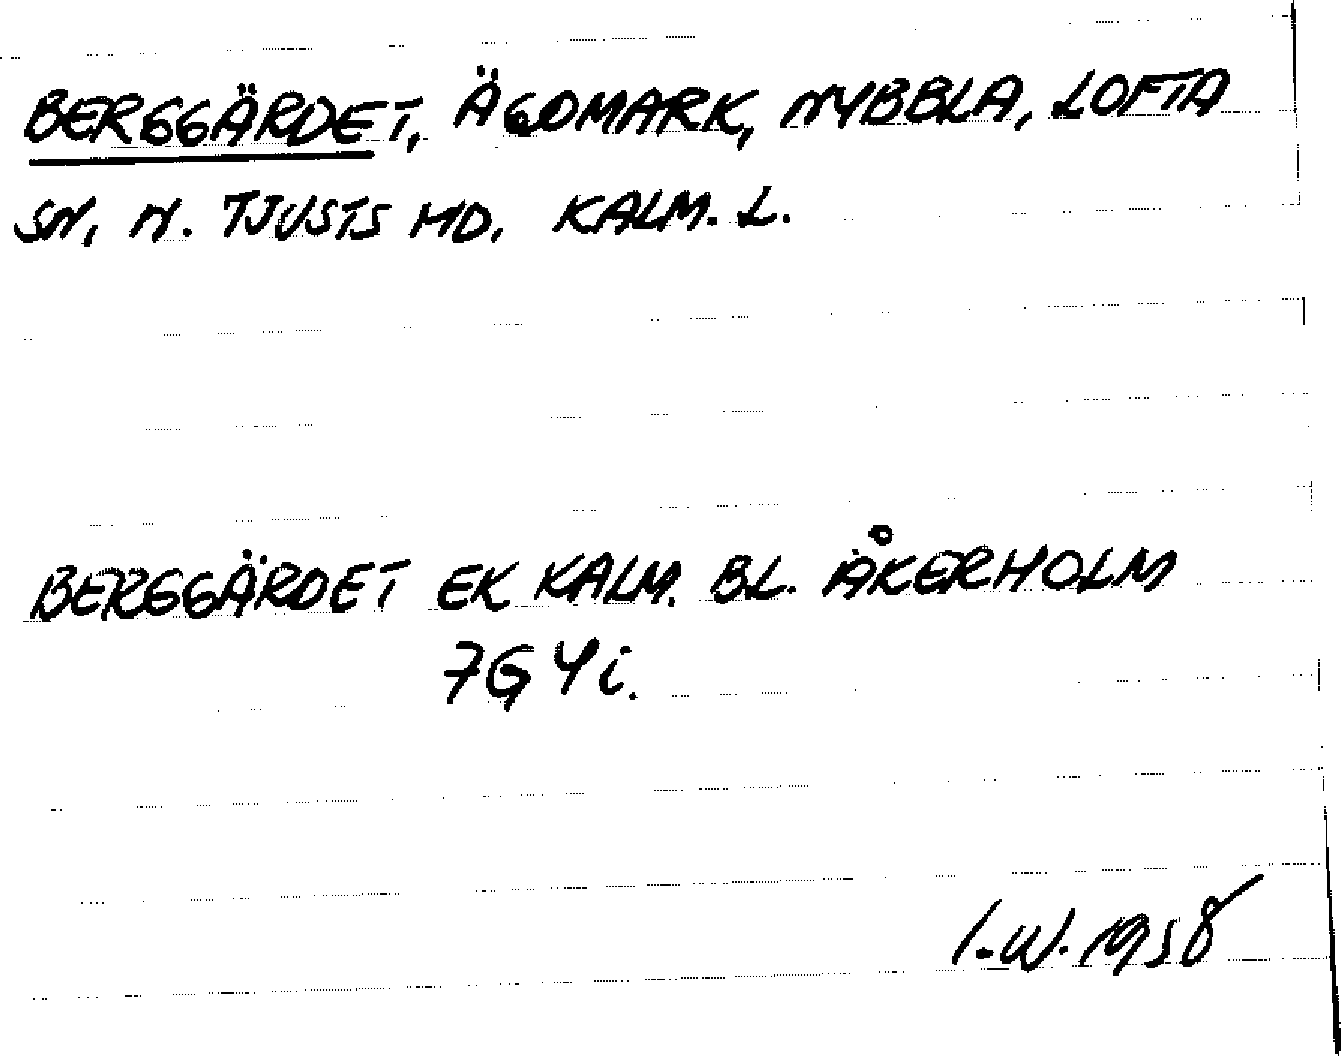 BERGGÄRDET, ÄGOMARK, NYBBLA, LOFTA
SN, N. TJUSTS HD. KALM. L.
BERGGÄRDET EK KALM. BL. ÅKERHOLM
7G4i.
I.W. 1958